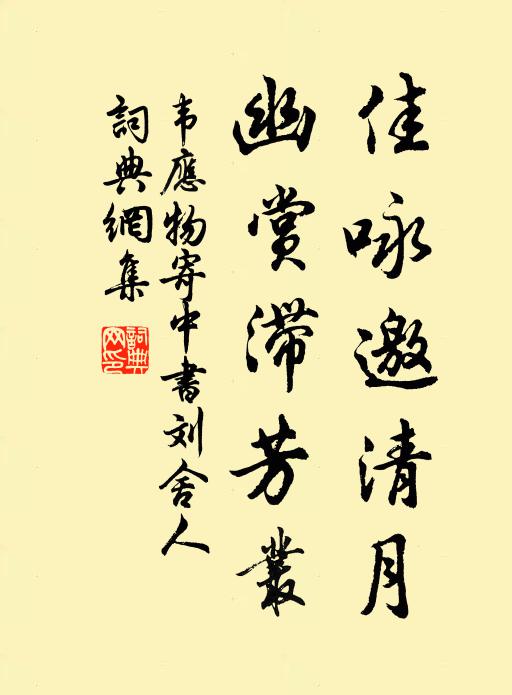 佳咏邀清月
幽赏滞芳叢
韦應物寄中書刘舍人
詞典網集
詞典网印